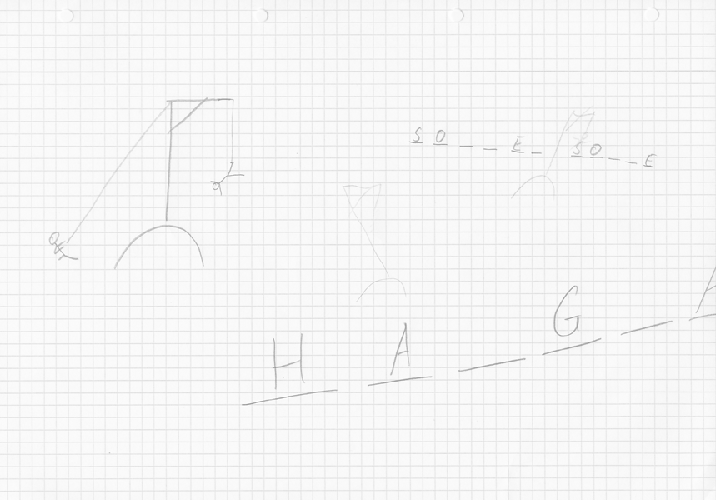 S O _ _ E _ S O _ _ E
H A _ G _ A